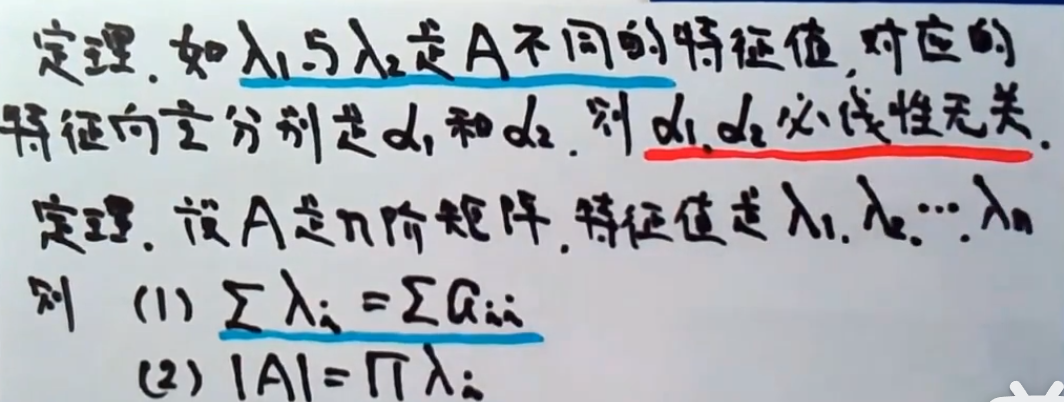 定理.如λ₁与λ₂是A不同的特征值,对应的
特征向量分别是α₁和α₂.则α₁,α₂必线性无关.
定理.设A是n阶矩阵,特征值是λ₁,λ₂,…,λₙ
则 (1) Σλᵢ=Σaᵢᵢ
(2) |A|=Πλᵢ